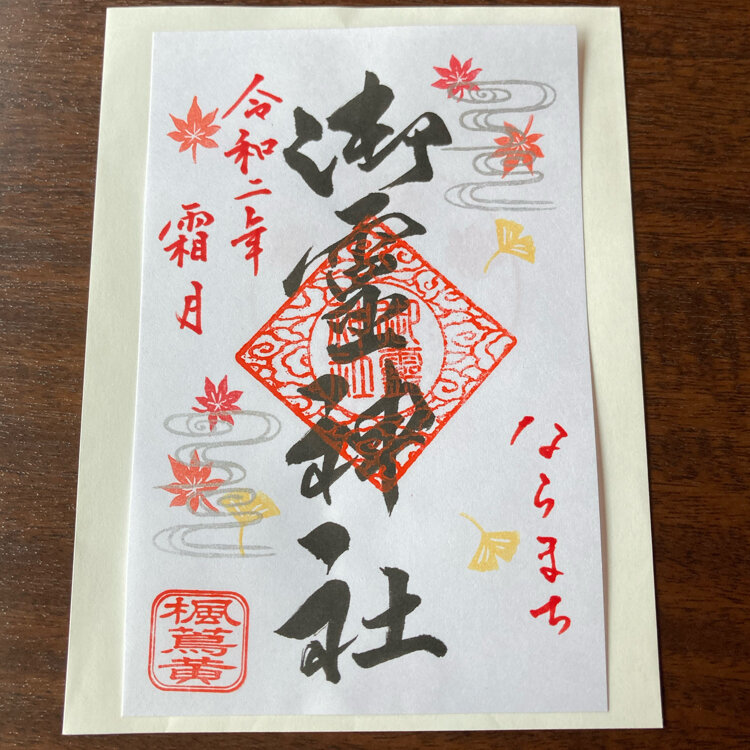 ならまち
御霊神社
御霊神社
令和二年
霜月
楓蔦黄